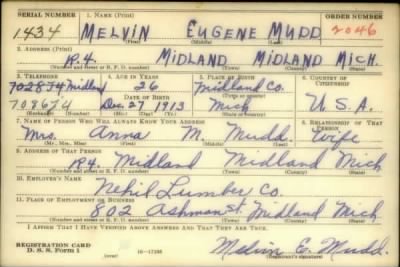 SERIAL NUMBER 1. NAME (Print) ORDER NUMBER
1434 MELVIN EUGENE MUDD 2046
(First) (Middle) (Last)
2. ADDRESS (Print)
R4. MIDLAND MIDLAND MICH.
(Number and street or R. F. D. number) (Town) (County) (State)
3. TELEPHONE 4. AGE IN YEARS 5. PLACE OF BIRTH 6. COUNTRY OF CITIZENSHIP
702874 Midland 26 Midland Co.
DATE OF BIRTH (Town or county)
708674 Dec. 27 1913 Mich U.S.A.
(Exchange) (Number) (Mo.) (Day) (Yr.) (State or country)
7. NAME OF PERSON WHO WILL ALWAYS KNOW YOUR ADDRESS 8. RELATIONSHIP OF THAT PERSON
Mrs. Anna M. Mudd. Wife
(Mr., Mrs., Miss) (First) (Middle) (Last)
9. ADDRESS OF THAT PERSON
R4. Midland Midland Mich
(Number and street or R. F. D. number) (Town) (County) (State)
10. EMPLOYER'S NAME
Nehil Lumber Co.
11. PLACE OF EMPLOYMENT OR BUSINESS
802 Ashman St Midland Mich
(Number and street or R. F. D. number) (Town) (County) (State)
I AFFIRM THAT I HAVE VERIFIED ABOVE ANSWERS AND THAT THEY ARE TRUE.
REGISTRATION CARD
D. S. S. Form 1 (over) Melvin E. Mudd.
(Registrant's signature)